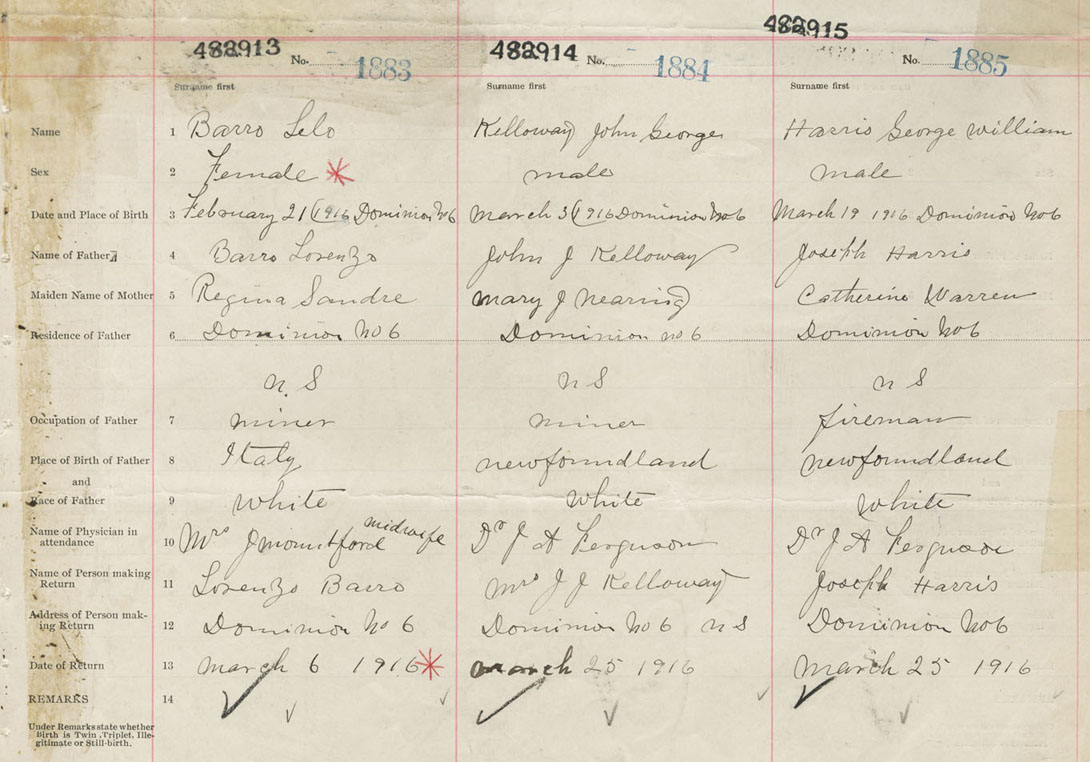 482913 482914 482915
No. 1883 No. 1884 No. 1885
Surname first Surname first Surname first
Name 1 Barro Lelo Kelloway John George Harris George William
Sex 2 Female * male male
Date and Place of Birth 3 February 21 (1916 Dominion No 6 March 3 (1916 Dominion No 6 March 19 1916 Dominion No 6
Name of Father 4 Barro Lorenzo John J Kelloway Joseph Harris
Maiden Name of Mother 5 Regina Sandre Mary J Nearing Catherine Warren
Residence of Father 6 Dominion No 6 Dominion no 6 Dominion No 6
n. S n S n S
Occupation of Father 7 miner miner fireman
Place of Birth of Father 8 Italy newfoundland newfoundland
and
Race of Father 9 White White White
Name of Physician in attendance 10 Mrs J Mountford midwife Dr J A Ferguson Dr J A Ferguson
Name of Person making Return 11 Lorenzo Barro Mrs J J Kelloway Joseph Harris
Address of Person mak-ing Return 12 Dominion No 6 Dominion No 6 n S Dominion No 6
Date of Return 13 march 6 1916 * march 25 1916 March 25 1916
REMARKS 14
Under Remarks state whether
Birth is Twin, Triplet, Ille-
gitimate or Still-birth.